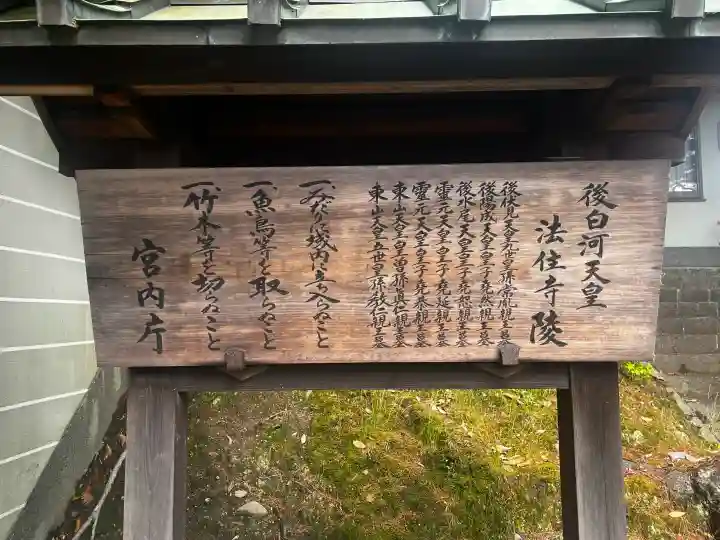 後白河天皇
法住寺陵
後伏見天皇五世皇孫常胤親王墓
後陽成天皇皇子堯然親王墓
後水尾天皇皇子堯恕親王墓
靈元天皇皇子堯延親王墓
靈元天皇皇子堯恭親王墓
東山天皇皇曽孫真仁親王墓
東山天皇五世皇孫教仁親王墓
一、みだりに域内に立ち入らぬこと
一、魚鳥等を取らぬこと
一、竹木等を切らぬこと
宮内庁